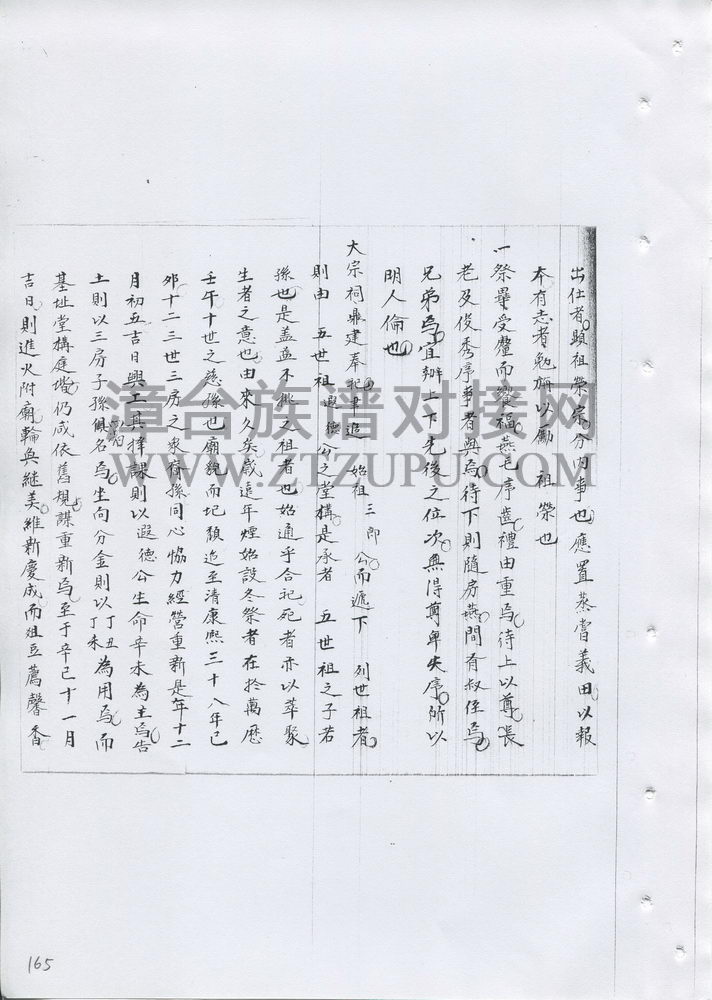 出仕者顯祖榮宗分內事也應置蒸嘗義田以報
本有志者勉旃以勵 祖榮也
一祭畢受釐而餕福燕毛序齒禮由重焉待上以尊長
老及俊秀序事者與焉待下則隨房燕間有叔侄焉
兄弟焉宜辦上下先後之位次無得尊卑失序所以
明人倫也
大宗祠鼎建奉祀聿追 始祖三郎公而遞下 列世祖者
則由 五世祖遐德公之堂構是承者 五世祖之子若
孫也是蓋並不祧之祖者也始通乎合祀死者亦以萃聚
生者之意也由來久矣歲遠年煙始設冬祭者在於萬曆
壬午十世之慈孫也廟貌而圮頹迨至清康熙三十八年己
卯十二三世三房之裔孫同心恊力經營重新是年十二
月初五吉日興工其擇課則以遐德公生命辛未為主焉告
土則以三房子孫俱名焉坐向分金則以丁丑丁未為用焉而
基址堂構庭堦仍咸依舊規謀重新焉至于辛巳十一月
吉日則進火附廟輪奐継美維新慶成而俎豆薦馨香
漳台族谱对接网
WWW.ZTZUPU.COM
165